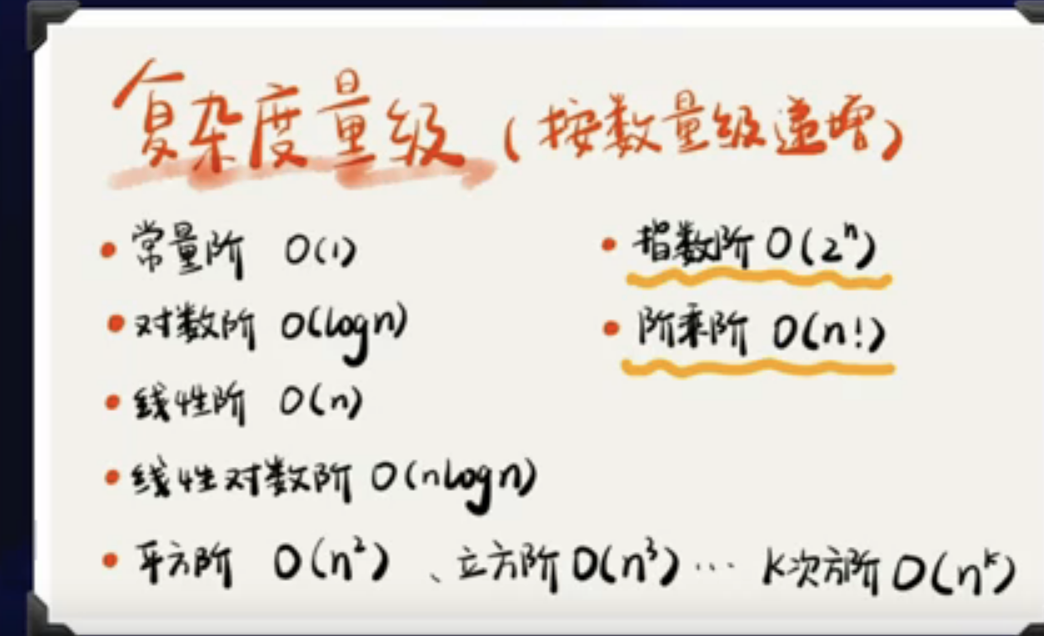 复杂度量级（按数量级递增）
• 常量阶 O(1)
• 对数阶 O(logn)
• 线性阶 O(n)
• 线性对数阶 O(nlogn)
• 平方阶 O(n²)、立方阶 O(n³)… K次方阶 O(nᵏ)
• 指数阶 O(2ⁿ)
• 阶乘阶 O(n!)